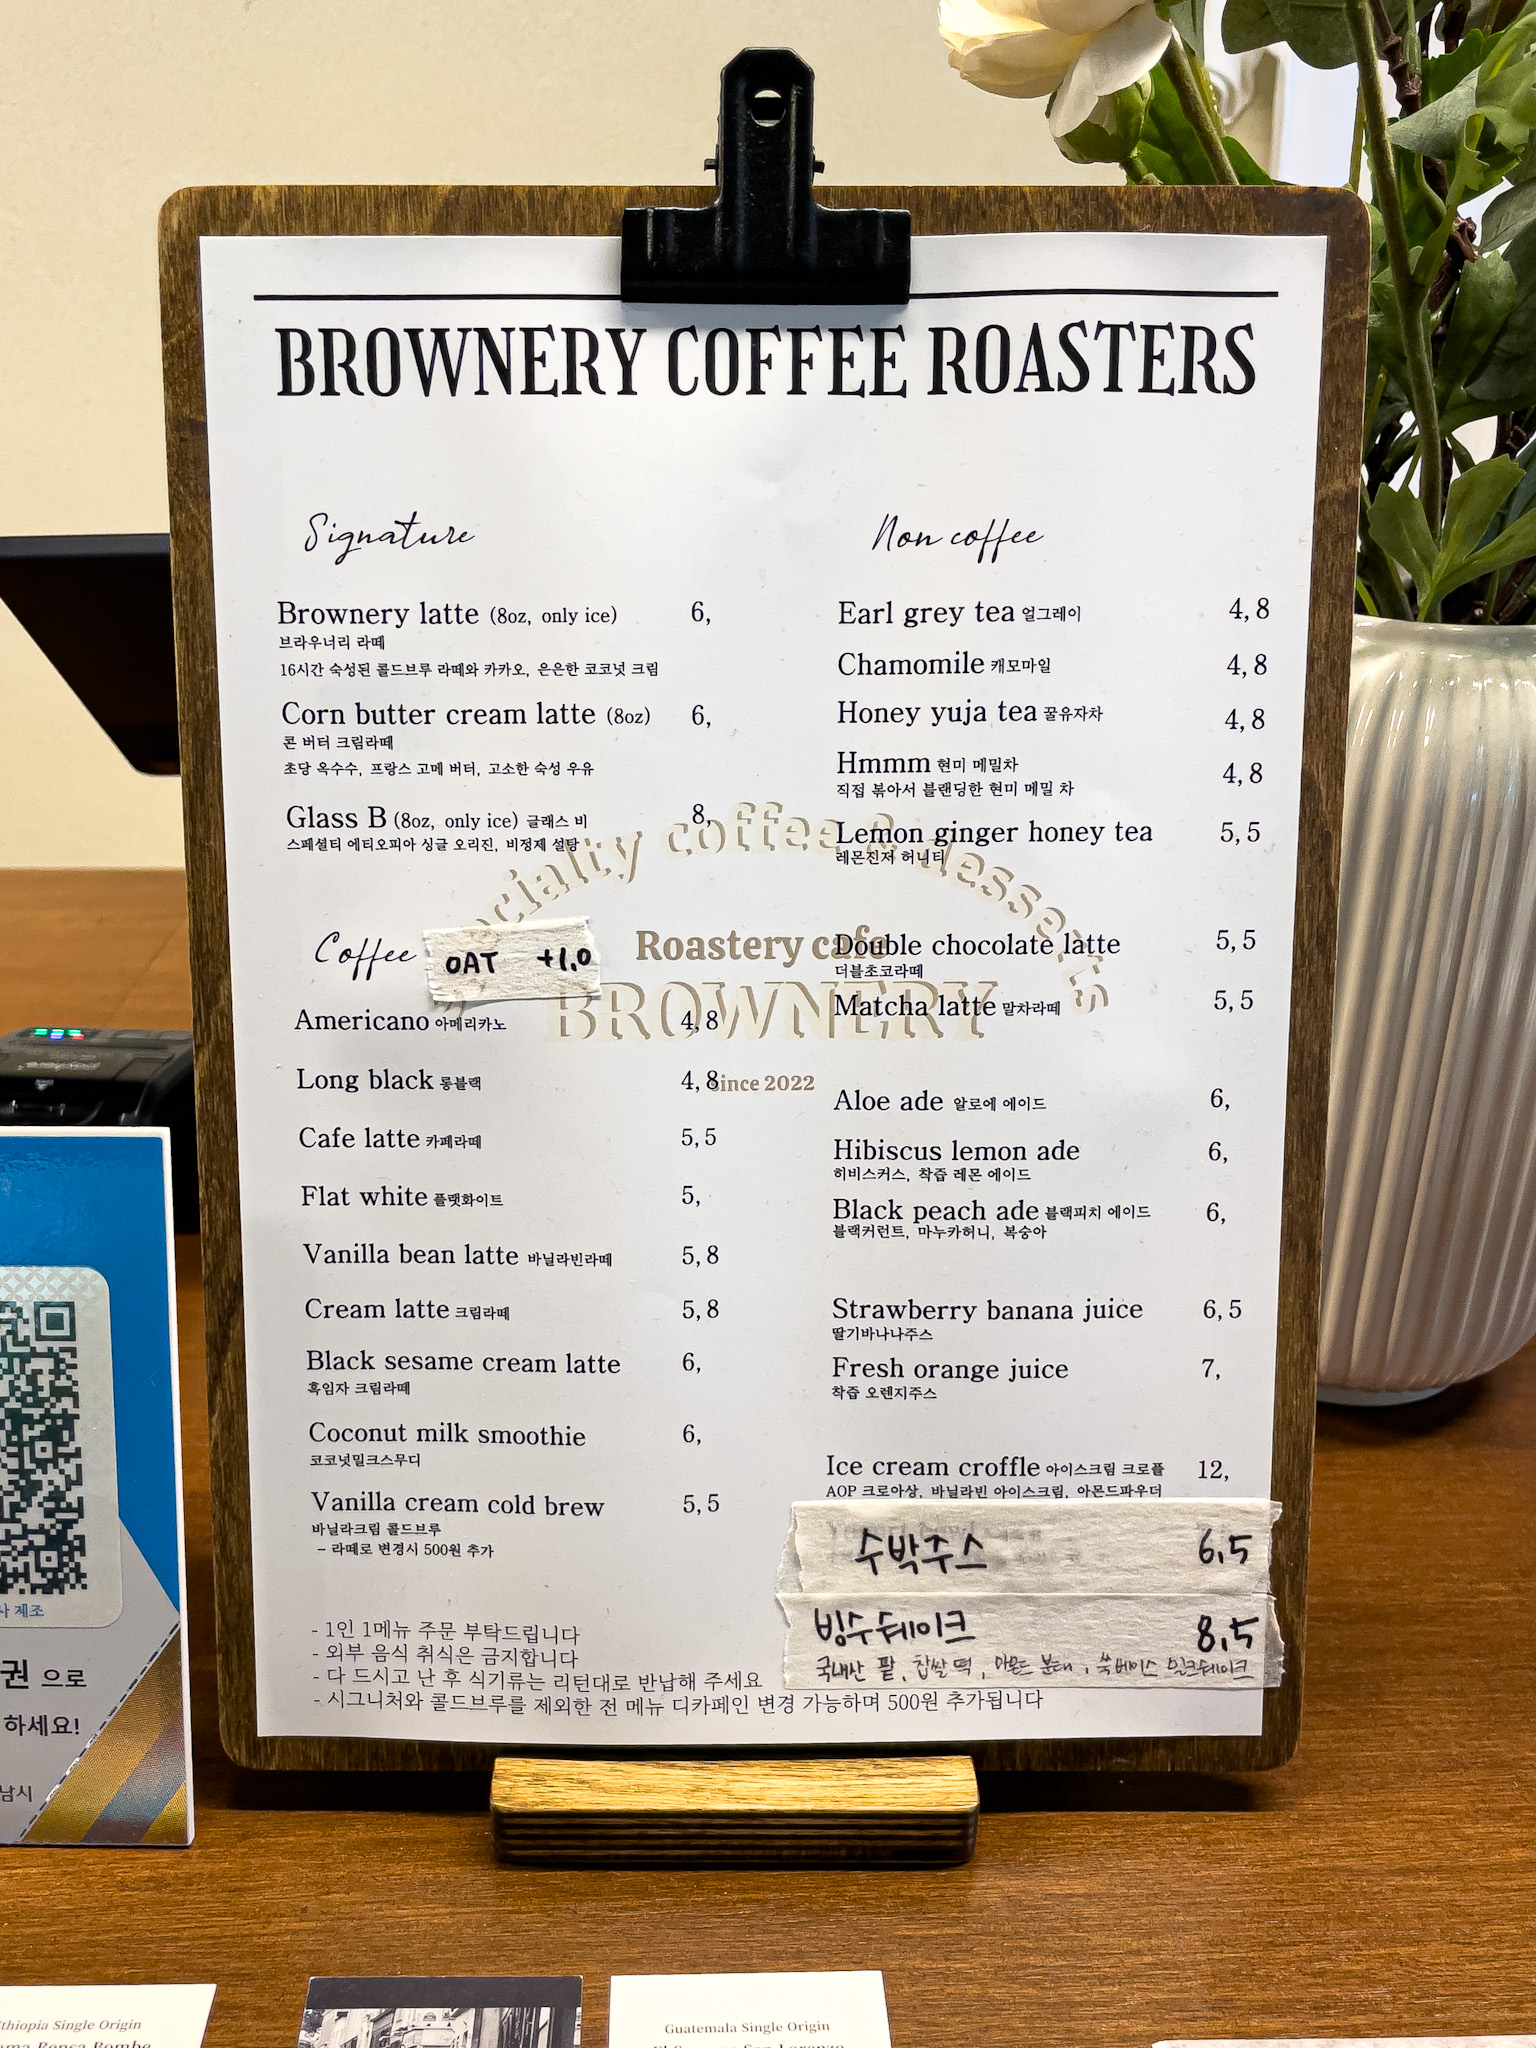 BROWNERY COFFEE ROASTERS
Signature
Brownery latte (8oz, only ice) 6,
브라우너리 라떼
16시간 숙성된 콜드브루 라떼와 카카오, 은은한 코코넛 크림
Corn butter cream latte (8oz) 6,
콘 버터 크림라떼
초당 옥수수, 프랑스 고메 버터, 고소한 숙성 우유
Glass B (8oz, only ice) 글래스 비 8,
스페셜티 에티오피아 싱글 오리진, 비정제 설탕
Coffee OAT +1,0
Americano 아메리카노 4,8
Long black 롱블랙 4,8
Cafe latte 카페라떼 5,5
Flat white 플랫화이트 5,
Vanilla bean latte 바닐라빈라떼 5,8
Cream latte 크림라떼 5,8
Black sesame cream latte 6,
흑임자 크림라떼
Coconut milk smoothie 6,
코코넛밀크스무디
Vanilla cream cold brew 5,5
바닐라크림 콜드브루
- 라떼로 변경시 500원 추가
Non coffee
Earl grey tea 얼그레이 4,8
Chamomile 캐모마일 4,8
Honey yuja tea 꿀유자차 4,8
Hmmm 현미 메밀차 4,8
직접 볶아서 블랜딩한 현미 메밀 차
Lemon ginger honey tea 5,5
레몬진저 허니티
Double chocolate latte 5,5
더블초코라떼
Matcha latte 말차라떼 5,5
Aloe ade 알로에 에이드 6,
Hibiscus lemon ade 6,
히비스커스, 착즙 레몬 에이드
Black peach ade 블랙피치 에이드 6,
블랙커런트, 마누카허니, 복숭아
Strawberry banana juice 6,5
딸기바나나주스
Fresh orange juice 7,
착즙 오렌지주스
Ice cream croffle 아이스크림 크로플 12,
AOP 크로아상, 바닐라빈 아이스크림, 아몬드파우더
수박주스 6,5
빙수쉐이크 8,5
국내산 팥, 찹쌀떡, 아몬드 분태, 쑥베이스 밀크쉐이크
- 1인 1메뉴 주문 부탁드립니다
- 외부 음식 취식은 금지합니다
- 다 드시고 난 후 식기류는 리턴대로 반납해 주세요
- 시그니처와 콜드브루를 제외한 전 메뉴 디카페인 변경 가능하며 500원 추가됩니다
coffee & desserts
Roastery cafe
BROWNERY
since 2022
제조
권 으로
하세요!
남시
Single Origin
Guatemala Single Origin